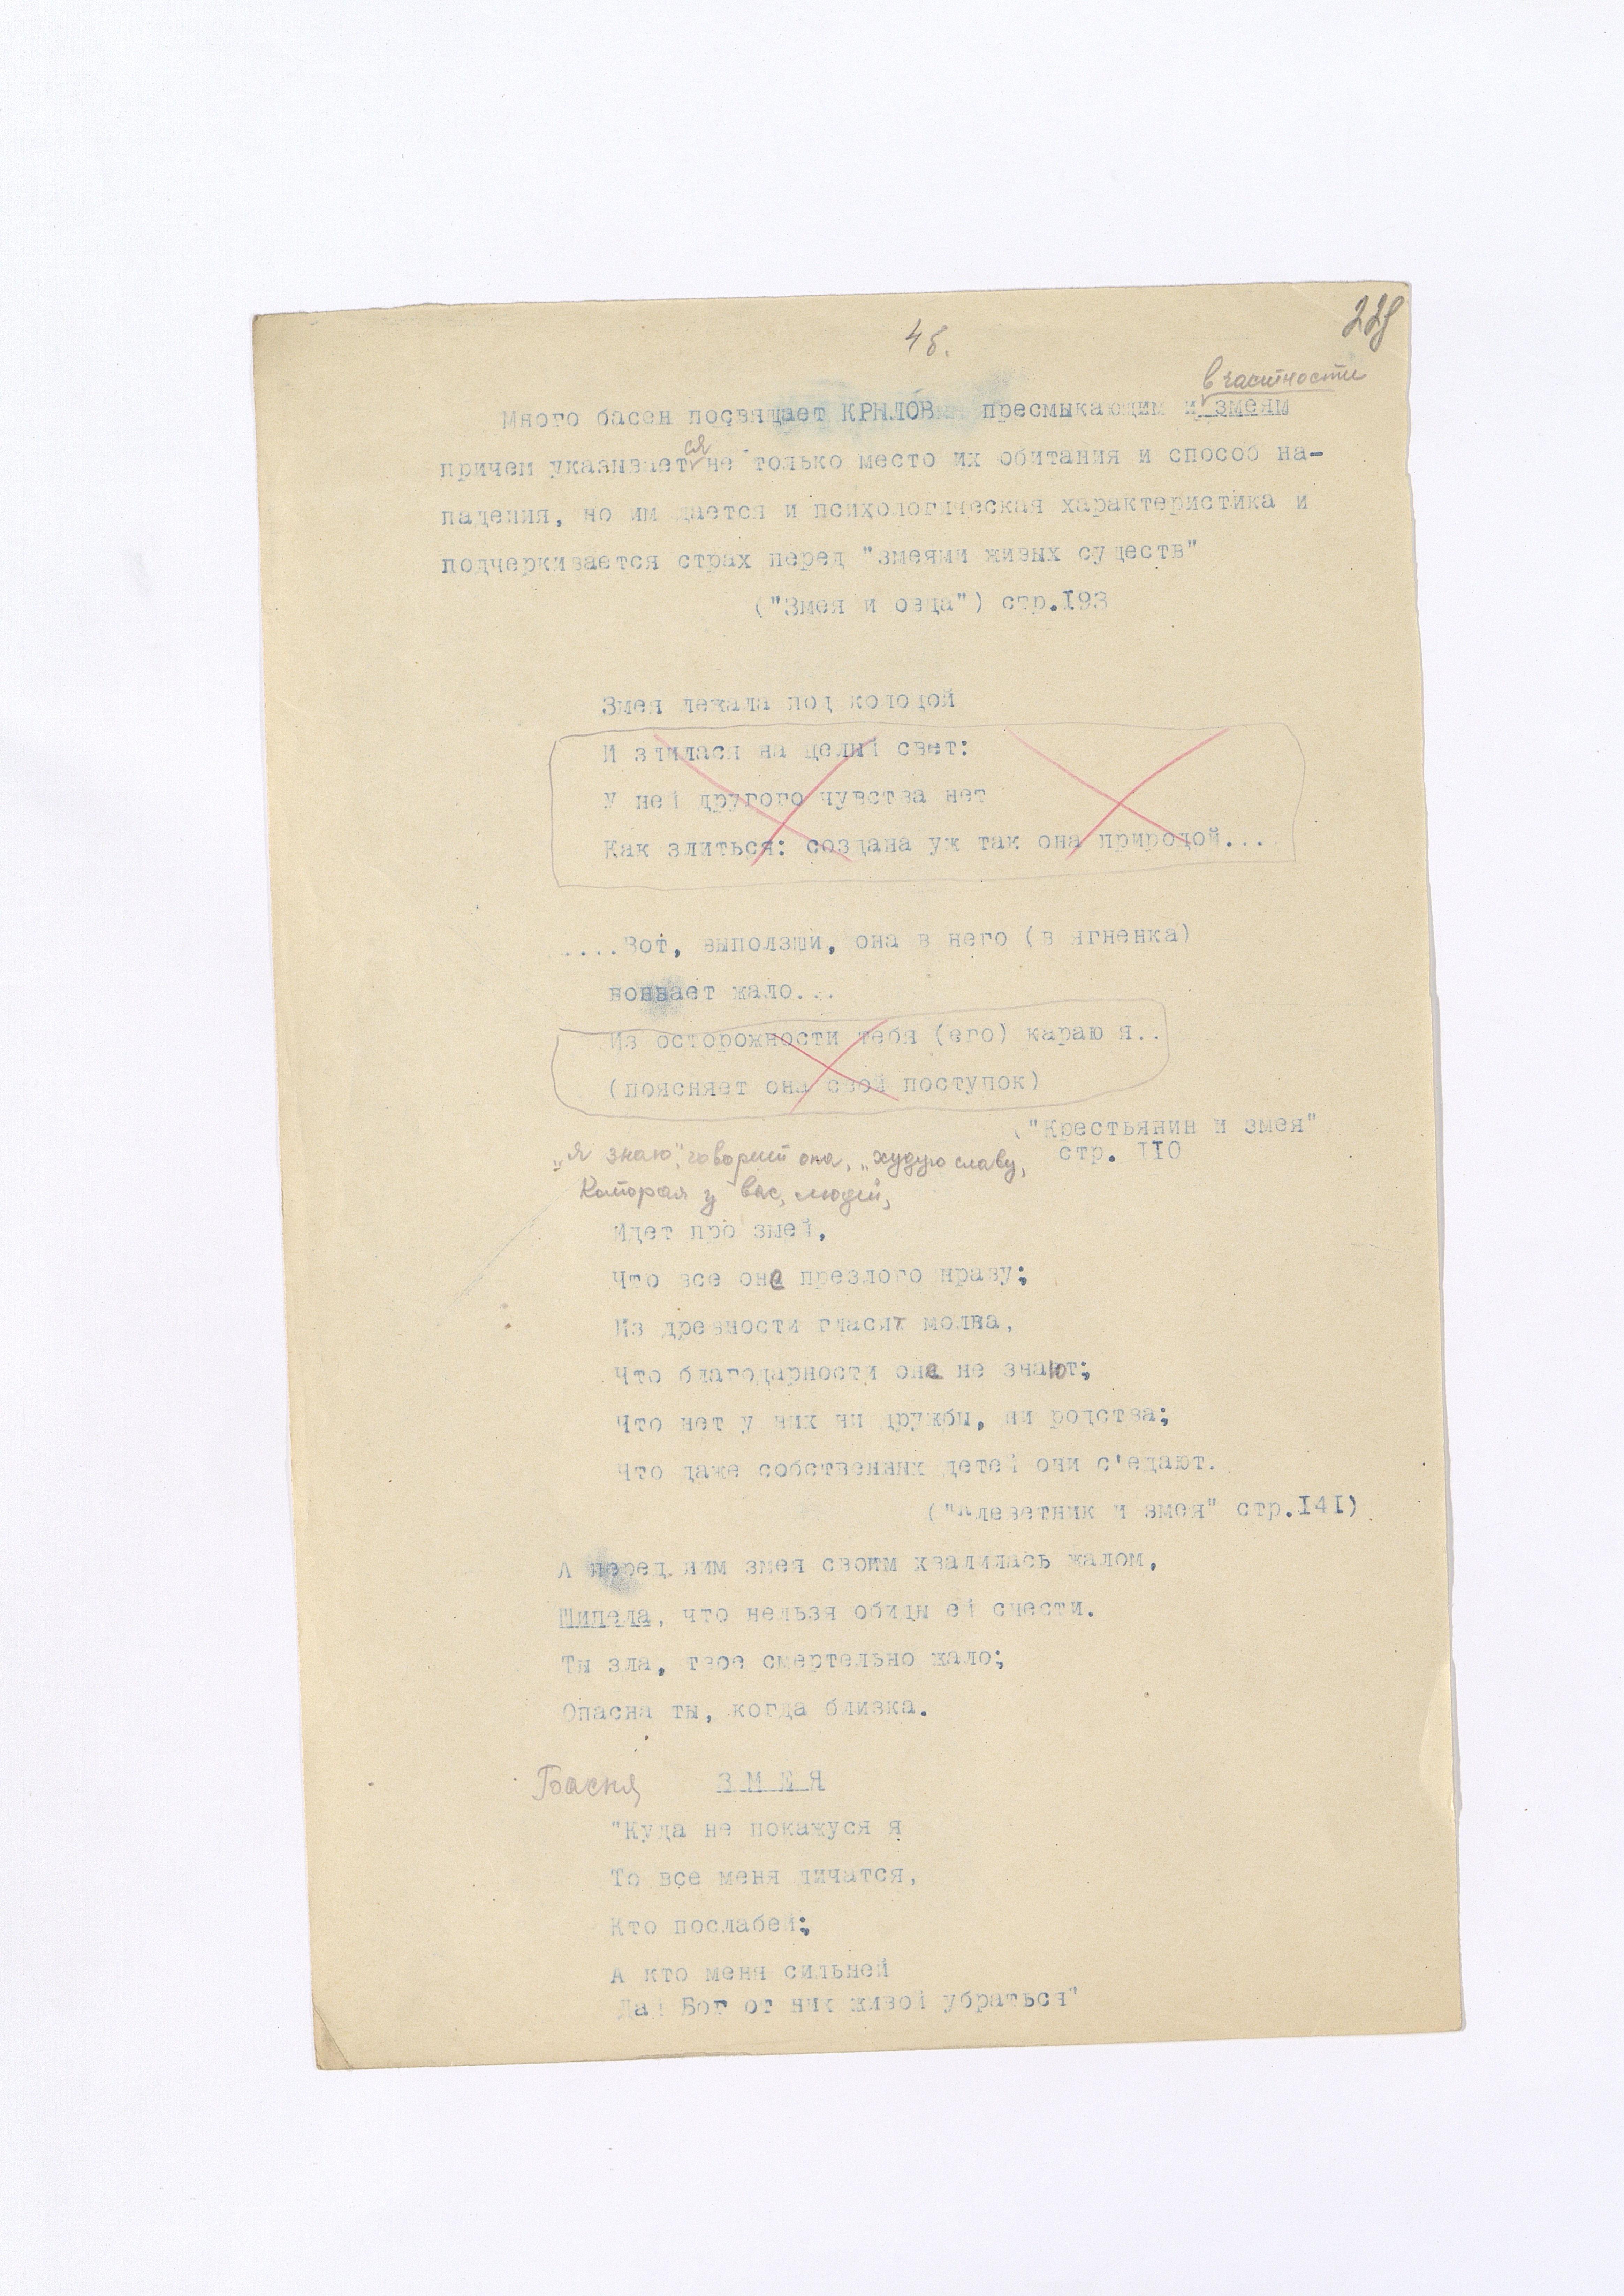 228
45.
в частности
Много басен посвящает КРЫЛОВ пресмыкающим и змеям
ся
причем указывает не только место их обитания и способ на-
падения, но им дается и психологическая характеристика и
подчеркивается страх перед "змеями живых существ"
("Змея и овца") стр.I93
Змея лежала под колодой
И злилася на целый свет:
У ней другого чувства нет
Как злиться: создана уж так она природой...
....Вот, выползши, она в него (в ягненка)
вонзает жало...
Из осторожности тебя (его) караю я..
(поясняет она свой поступок)
("Крестьянин и змея"
стр. IIO
„Я знаю", говорит она, „худую славу,
Которая у вас, людей,
Идет про змей,
Что все оне презлого нраву;
Из древности гласит молва,
Что благодарности оне не знают;
Что нет у них ни дружбы, ни родства;
Что даже собственных детей они с'едают.
("Клеветник и змея" стр.I4I)
А перед ним змея своим хвалилась жалом,
Шипела, что нельзя обиды ей снести.
Ты зла, твое смертельно жало;
Опасна ты, когда близка.
Басня З М Е Я
"Куда не покажуся я
То все меня дичатся,
Кто послабей;
А кто меня сильней
Дай Бог от них живой убраться"